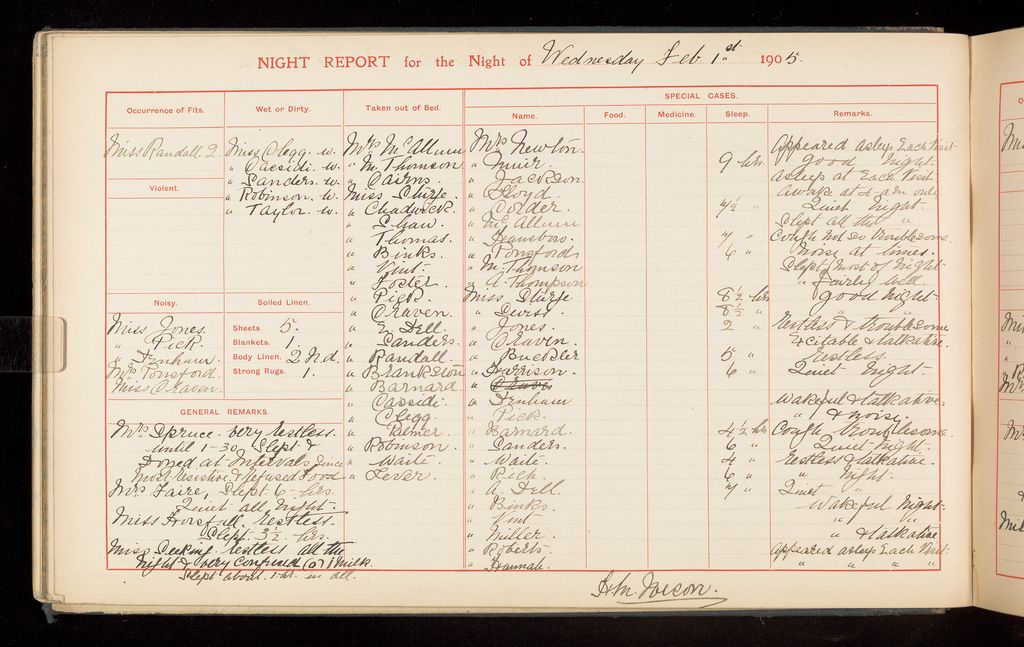 NIGHT REPORT for the Night of Wednesday Feb 1st 1905.
Occurrence of Fits.
Miss Randall. 2.
Violent.
Noisy.
Miss Jones.
" Pick.
" Denham.
Mrs Ponsford.
Miss Craven.
Wet or Dirty.
Miss Clegg. w.
" Cassidi. w.
" Sanders. w.
" Robinson. w.
" Taylor. w.
Soiled Linen.
Sheets. 5.
Blankets. 1.
Body Linen. 2 N.d.
Strong Rugs. 1.
Taken out of Bed.
Mrs McAllum
" M Thomson
" Cairns.
Miss Sturfe.
" Chadwick.
" Shaw.
" Thomas.
" Binks.
" Vint.
" Foster.
" Pick.
" Craven.
" E. Dell.
" Sanders.
" Randall.
" Brankston
" Barnard
" Cassidi.
" Clegg.
" Palmer.
" Robinson.
" Waite.
" Lever.
GENERAL REMARKS.
Mrs Spruce. very restless
until 1-30, Slept &
Dozed at Intervals since
Most resistive & refused Food
Mrs Faire, Slept 6 hrs.
Quiet all night.
Miss Horsfall. Restless.
Slept 3½ hrs.
Miss Seeking restless all the
night & very confused Milk
Slept about 1 hr. in all.
SPECIAL CASES.
Name. Food. Medicine. Sleep. Remarks.
Mrs Newton. Appeared asleep Each Visit
" Muir. 9 hrs. Good night.
" Jackson. asleep at Each Visit
" Lloyd. awake at 2 am only
" Corder. 7½ " Quiet night.
" McAllum Slept all the "
" Hansbow. 7 " Cough not so troublesome
" Ponsford 6 " Noisy at times.
" M. Thomson Slept most of night
" A. Thompson " Fairly well.
Miss Sturfe 8½ hrs Good night
" Lewis 8½ "
" Jones. 2 " restless & troublesome
" Craven. Excitable & talkative.
" Buckler 5 " Restless.
" Harrison. 6 " Quiet night.
" Denham wakeful & talkative.
" Pick " & noisy.
" Barnard. 4½ hrs Cough troublesome.
" Sanders. 6 " Quiet night.
" Waite. 4 " restless & talkative.
" Rich. 6 " " night.
" A. Dell. 7 " Quiet "
" Binks. Wakeful night
" Vint " "
" Miller " & talkative
" Roberts. Appeared asleep Each Visit.
" Hannah. " " " "